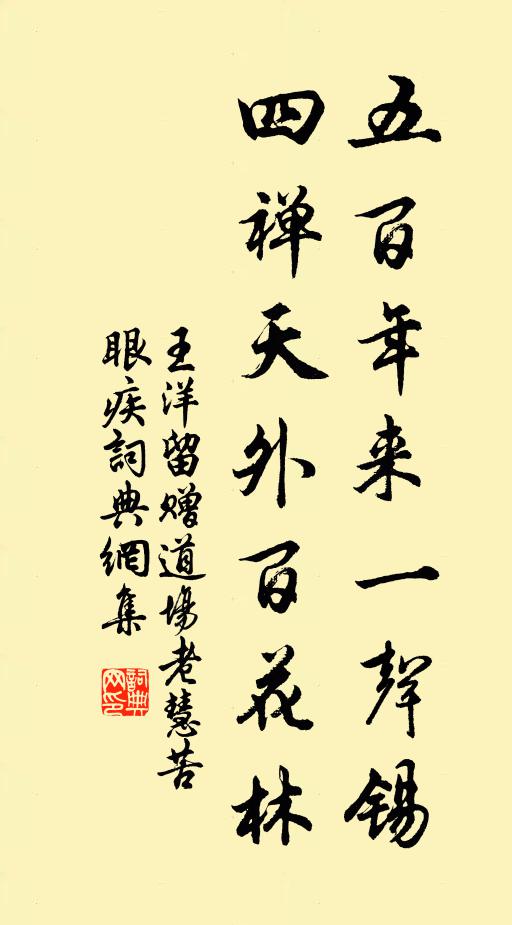 五百年来一声锡
四禅天外百花林
王洋留赠道場老慧苦
眼疾詞典網集
詞典网印